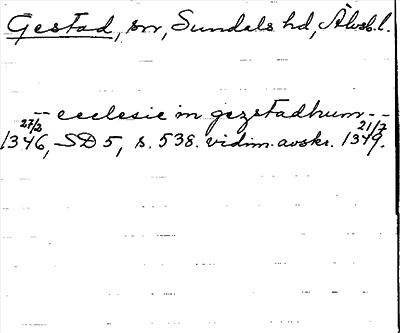 Gestad, sn, Sundals hd, Älvsb. l.
-- ecclesie in gezstadhum --
27/2 1346, SD 5, s. 538. vidim. avskr. 21/7 1349.